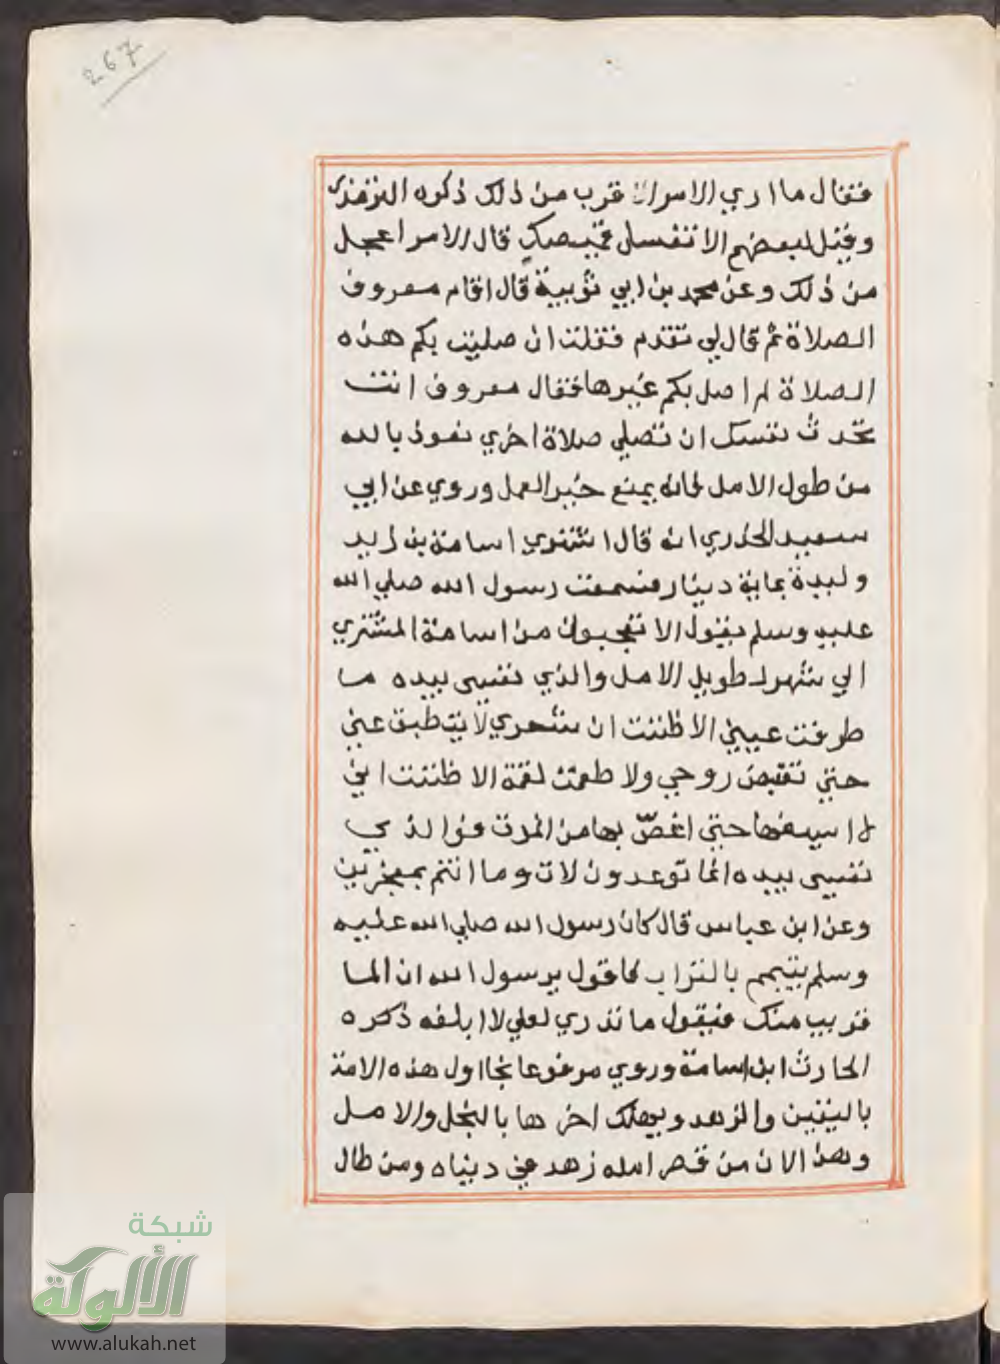 267
فقال ما اري الامر الا قرب من ذلك ذكره الترمذي
وقيل لبعضهم الا تغسل قميصك قال الامر اعجل
من ذلك وعن محمد بن ابي توبية قال اقام معروف
الصلاة ثم قال لي تقدم فقلت ان صليت بكم هذه
الصلاة لم اصل بكم غيرها فقال معروف انت
تحدث نفسك ان تصلي صلاة اخري نعوذ بالله
من طول الامل فانه يمنع خير العمل وروي عن ابي
سعيد الخدري انه قال اشتري اسامة بن زيد
وليدة بماية دينار فسمعت رسول الله صلي الله
عليه وسلم يقول الا تعجبون من اسامة المشتري
الي شهر لطويل الامل والذي نفسي بيده ما
طرفت عيني الا ظننت ان شفري لا يتطبق عني
حتي تقبض روحي ولا طعمت لقمة الا ظننت اني
لا اسيغها حتي اغصّ بها من الموت فوالذي
نفسي بيده انما توعدون لات وما انتم بمعجزين
وعن ابن عباس قال كان رسول الله صلي الله عليه
وسلم يتيمم بالتراب فاقول يرسول الله ان الما
قريب منك فيقول ما تدري لعلي لا ابلغه ذكره
الحارث ابن اسامة وروي مرفوعا نجا اول هذه الامة
باليقين والزهد ويهلك اخرها بالبخل والامل
وهذا لان من قصر امله زهد في دنياه ومن طال
شبكة
الألوكة
www.alukah.net